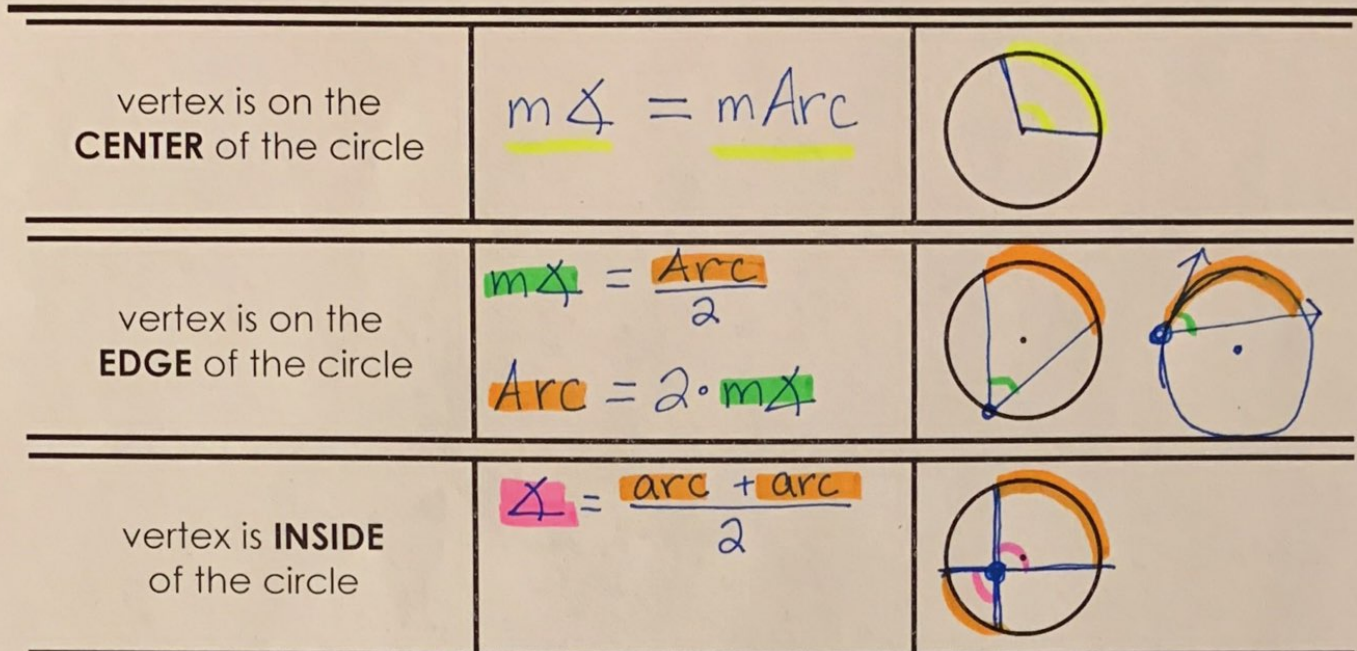 vertex is on the
CENTER of the circle
m∡ = mArc
vertex is on the
EDGE of the circle
m∡ = Arc
2
Arc = 2·m∡
vertex is INSIDE
of the circle
∡ = arc + arc
2